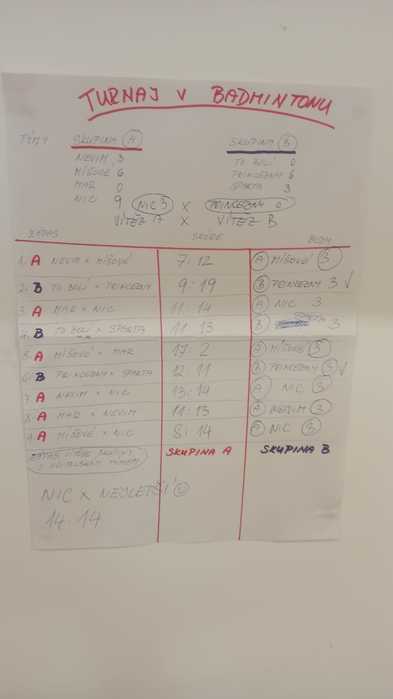 TURNAJ V BADMINTONU
TÝMY SKUPINA A SKUPINA B
NEVIM 3 TO BOLÍ 0
MÍŠOVÉ 6 PRINCEZNY 6
MAR 0 SPARTA 3
NIC 9 NIC 3 X PRINCEZNY 0
VÍTĚZ A X VÍTĚZ B
ZÁPAS SKÓRE BODY
1. A NEVIM X MÍŠOVÉ 7:12 A MÍŠOVÉ 3
2. B TO BOLÍ X PRINCEZNY 9:19 B PRINCEZNY 3 ✓
3. A MAR X NIC 11:14 A NIC 3
4. B TO BOLÍ X SPARTA 11:13 B SPARTA 3
5. A MÍŠOVÉ X MAR 17:2 MÍŠOVÉ 3
6. B PRINCEZNY X SPARTA 12:11 PRINCEZNY 3 ✓
7. A NEVIM X NIC 13:14 A NIC 3
8. A MAR X NEVIM 11:13 A NEVIM 3
9. A MÍŠOVÉ X NIC 8:14 NIC 3
SKUPINA A SKUPINA B
NIC X NEJLEPŠÍ
14:14